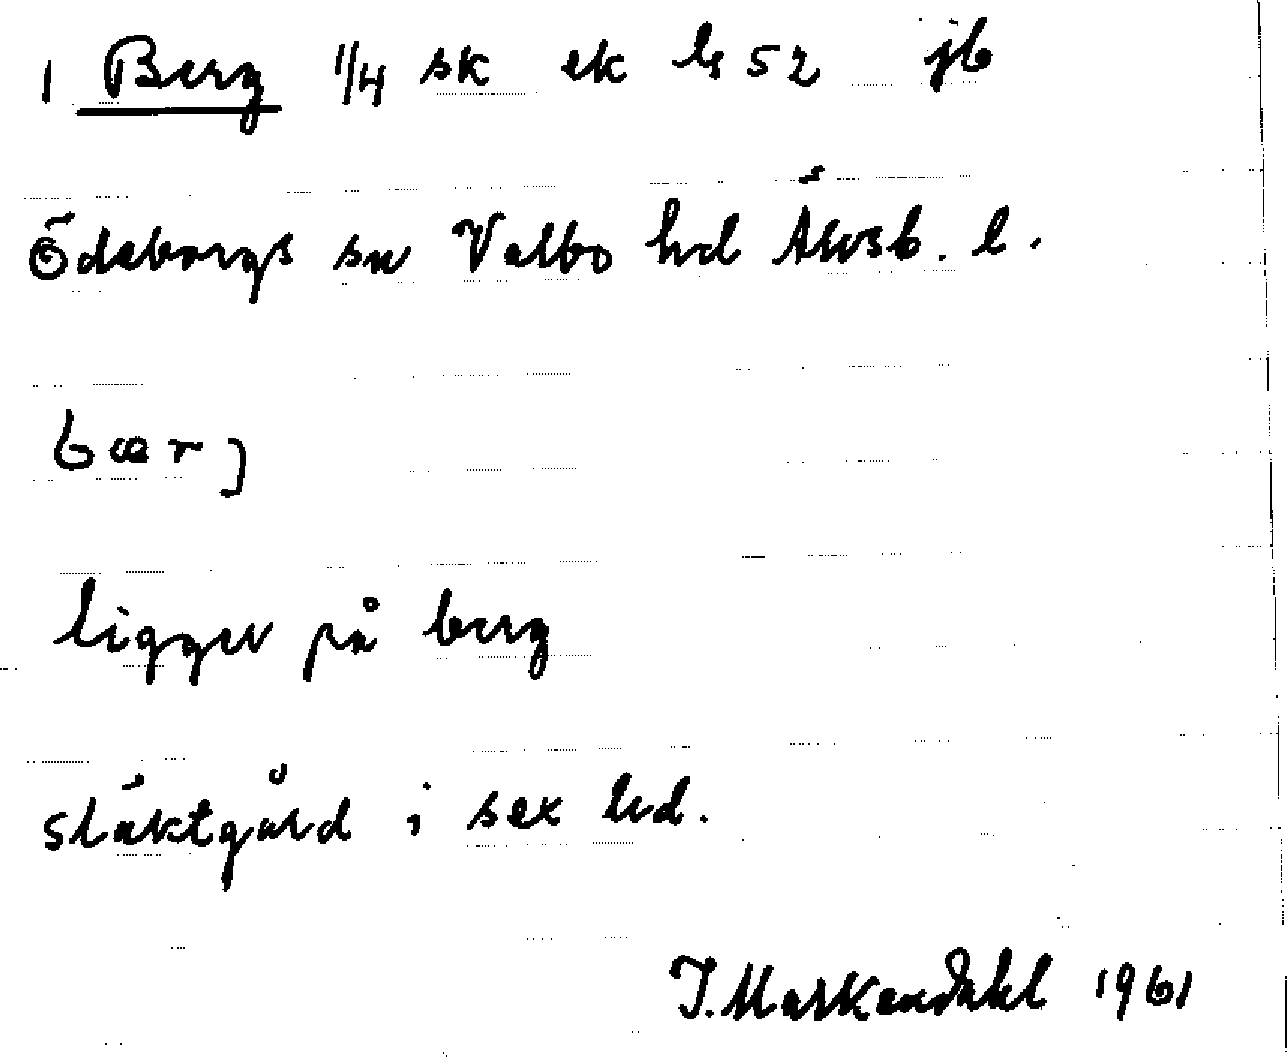 1 Berg 1/4 sk ek bl 52 jb
Ödeborgs sn Valbo hd Älvsb. l.
bærj
ligger på berg
släktgård i sex led.
J. Markendahl 1961